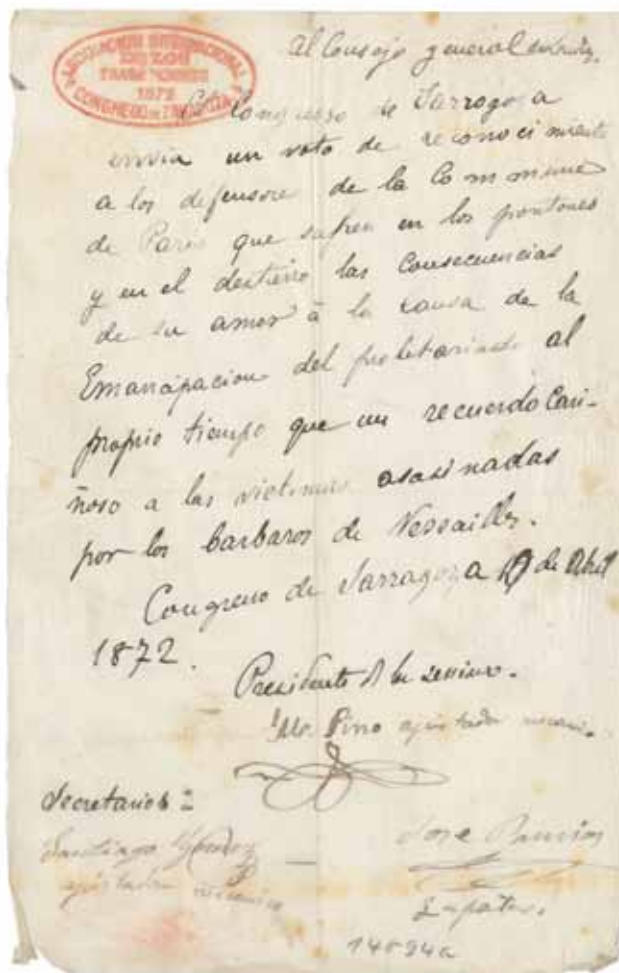 ASOCIACION INTERNACIONAL
DE LOS
TRABAJADORES
1872
CONGRESO DE ZARAGOZA
Al Consejo general
El Congresso de Sarragoza
envia un voto de reconocimiento
a los defensore de la Commune
de Paris que sufren en los pontones
y en el destierro las Consecuencias
de su amor á la causa de la
Emancipacion del proletariado al
proprio tiempo que un recuerdo Cari-
ñoso a las victimas asasinadas
por los barbaros de Versailles.
Congreso de Sarragoza de Abril
1872.
Presidente
Pino ajustador
Secretarios =
Santiago
ajustador mecanico
Jose
Zapatero.